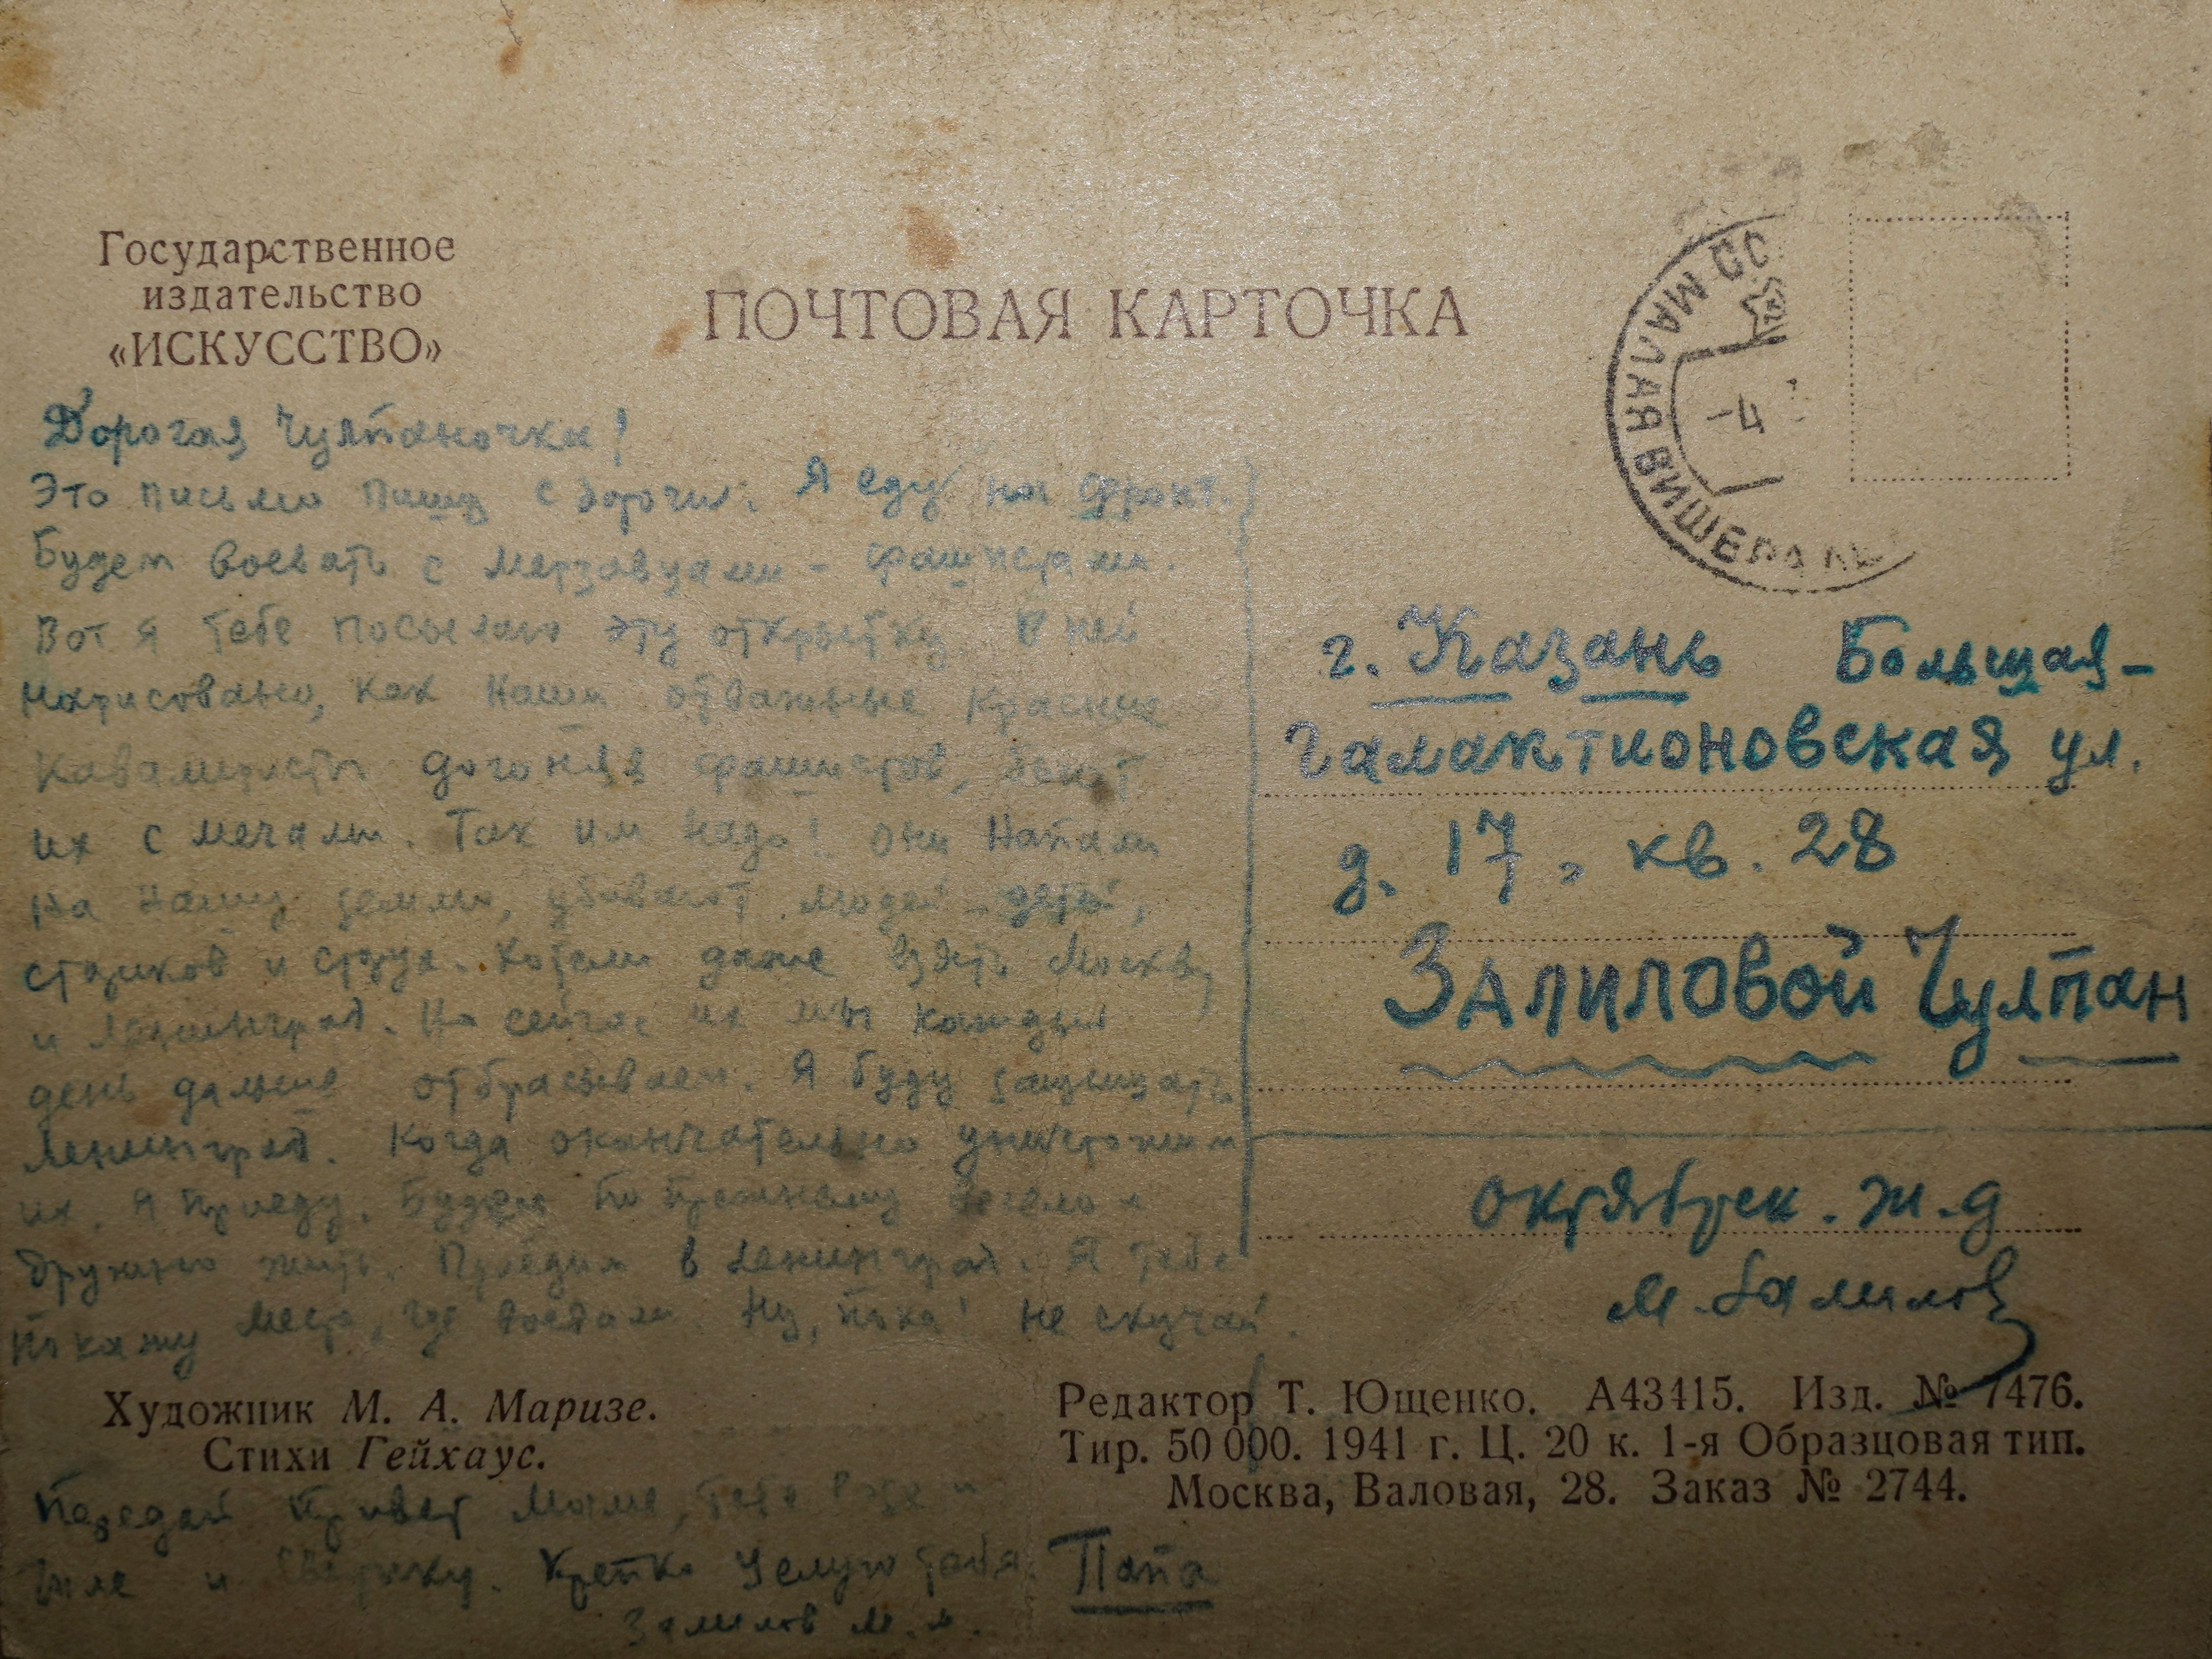 Государственное
издательство
«ИСКУССТВО»
ПОЧТОВАЯ КАРТОЧКА
СС МАЛАЯ ВИШЕРА
-4
Дорогая Чулпаночка!
Это письмо пишу с дороги. Я еду на фронт.
Будем воевать с мерзавцами - фашистами.
Вот я тебе посылаю эту открытку. В ней
нарисовано, как наши отважные красные
кавалеристы догоняя фашистов, бьют
их с мечами. Так им надо! Они напали
на нашу землю, убивают людей - детей,
стариков и старух. Хотели даже взять Москву
и Ленинград. Но сейчас их мы каждый
день дальше отбрасываем. Я буду защищать
Ленинград. Когда окончательно уничтожим
их, я приеду. Будем по прежнему весело и
дружно жить. Поедем в Ленинград. Я тебе
покажу места, где воевали. Ну, пока! Не скучай.
г. Казань Большая-
Галактионовская ул.
д. 17, кв. 28
Залиловой Чулпан
октябрск. ж.д
М. Залилов
Художник М. А. Маризе.
Стихи Гейхаус.
Редактор Т. Ющенко. А43415. Изд. № 7476.
Тир. 50 000. 1941 г. Ц. 20 к. 1-я Образцовая тип.
Москва, Валовая, 28. Заказ № 2744.
Передай привет маме, тете и
и Крепко целую тебя Папа
Залилов М.М.